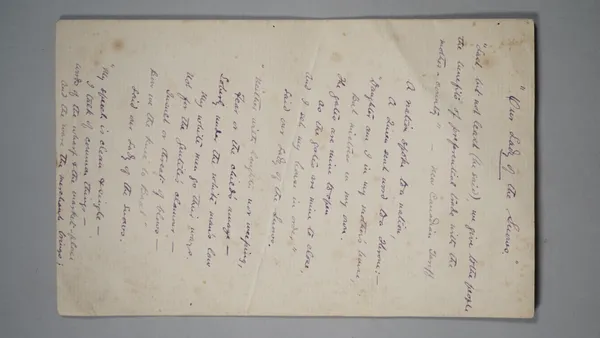 "Our Lady of the Snows"
"Last, but not least (he said), we give to the people
the benefits of preferential trade with the
mother-country" — New Canadian Tariff
A nation spoke to a nation,
A Queen sent word to a throne:—
"Daughter am I in my mother's house,
But mistress in my own.
The gates are mine to open
As the gates are mine to close,
And I set my house in order,"
Said our Lady of the Snows.
"Neither with laughter nor weeping,
Fear or the child's amaze—
Soberly under the white man's law
My white men go their ways.
Not for the Gentiles' clamour—
Insult or threat of blows—
Bow we the knee to Baal"
Said our Lady of the Snows.
"My speech is clean & single—
I talk of common things—
Words of the wharf & the market-place
And the ware the merchant brings;